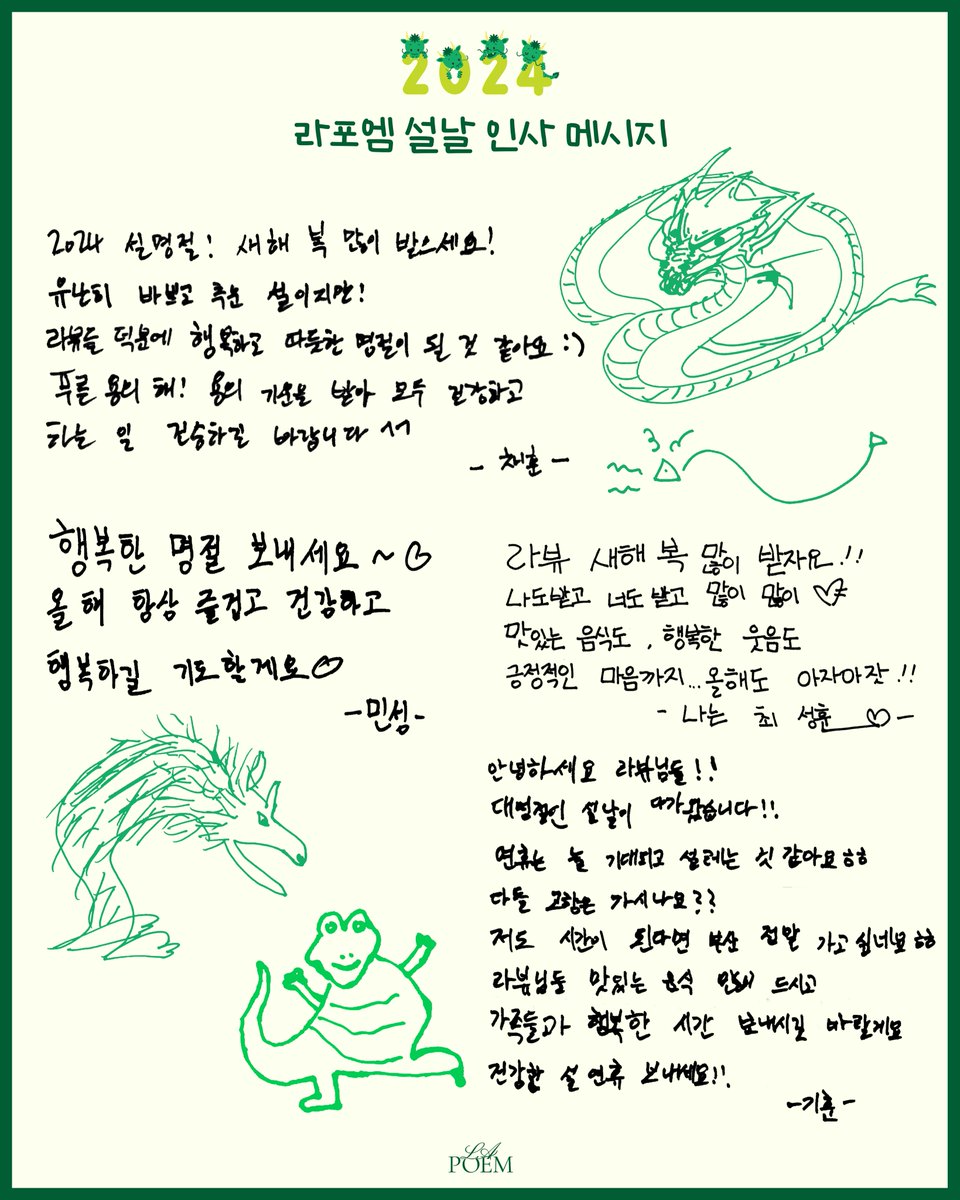 2024
라포엠 설날 인사 메시지
2024 설명절! 새해 복 많이 받으세요!
유난히 바쁘고 추운 설이지만!
라뷰들 덕분에 행복하고 따듯한 명절이 될 것 같아요 :)
푸른 용의 해! 용의 기운을 받아 모두 건강하고
하는 일 건승하길 바랍니다 ^^
- 채훈 -
행복한 명절 보내세요~♡
올해 항상 즐겁고 건강하고
행복하길 기도할게요♡
-민성-
라뷰 새해 복 많이 받자요!!
나도받고 너도 받고 많이 많이 ♡
맛있는 음식도, 행복한 웃음도
긍정적인 마음까지...올해도 아자아잣!!
- 나는 최 성훈 ♡-
안녕하세요 라뷰님들!!
대명절인 설날이 다가왔습니다!!
연휴는 늘 기대되고 설레는 것 같아요ㅎㅎ
다들 고향은 가시나요??
저도 시간이 된다면 부산 정말 가고 싶네요ㅎㅎ
라뷰님들 맛있는 음식 많이 드시고
가족들과 행복한 시간 보내시길 바랄게요
건강한 설 연휴 보내세요!!
-기훈-
LA
POEM